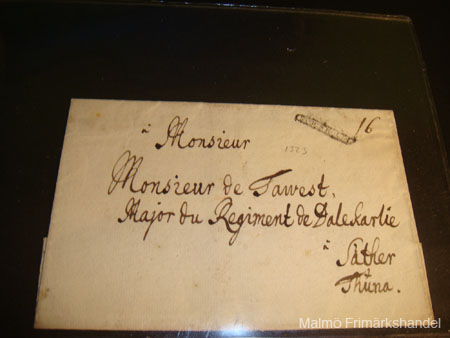 16
à Monsieur
Monsieur de Fawest.
Major du Regiment de Dalekarlie
à Säther
Thüna.
Malmö Frimärkshandel